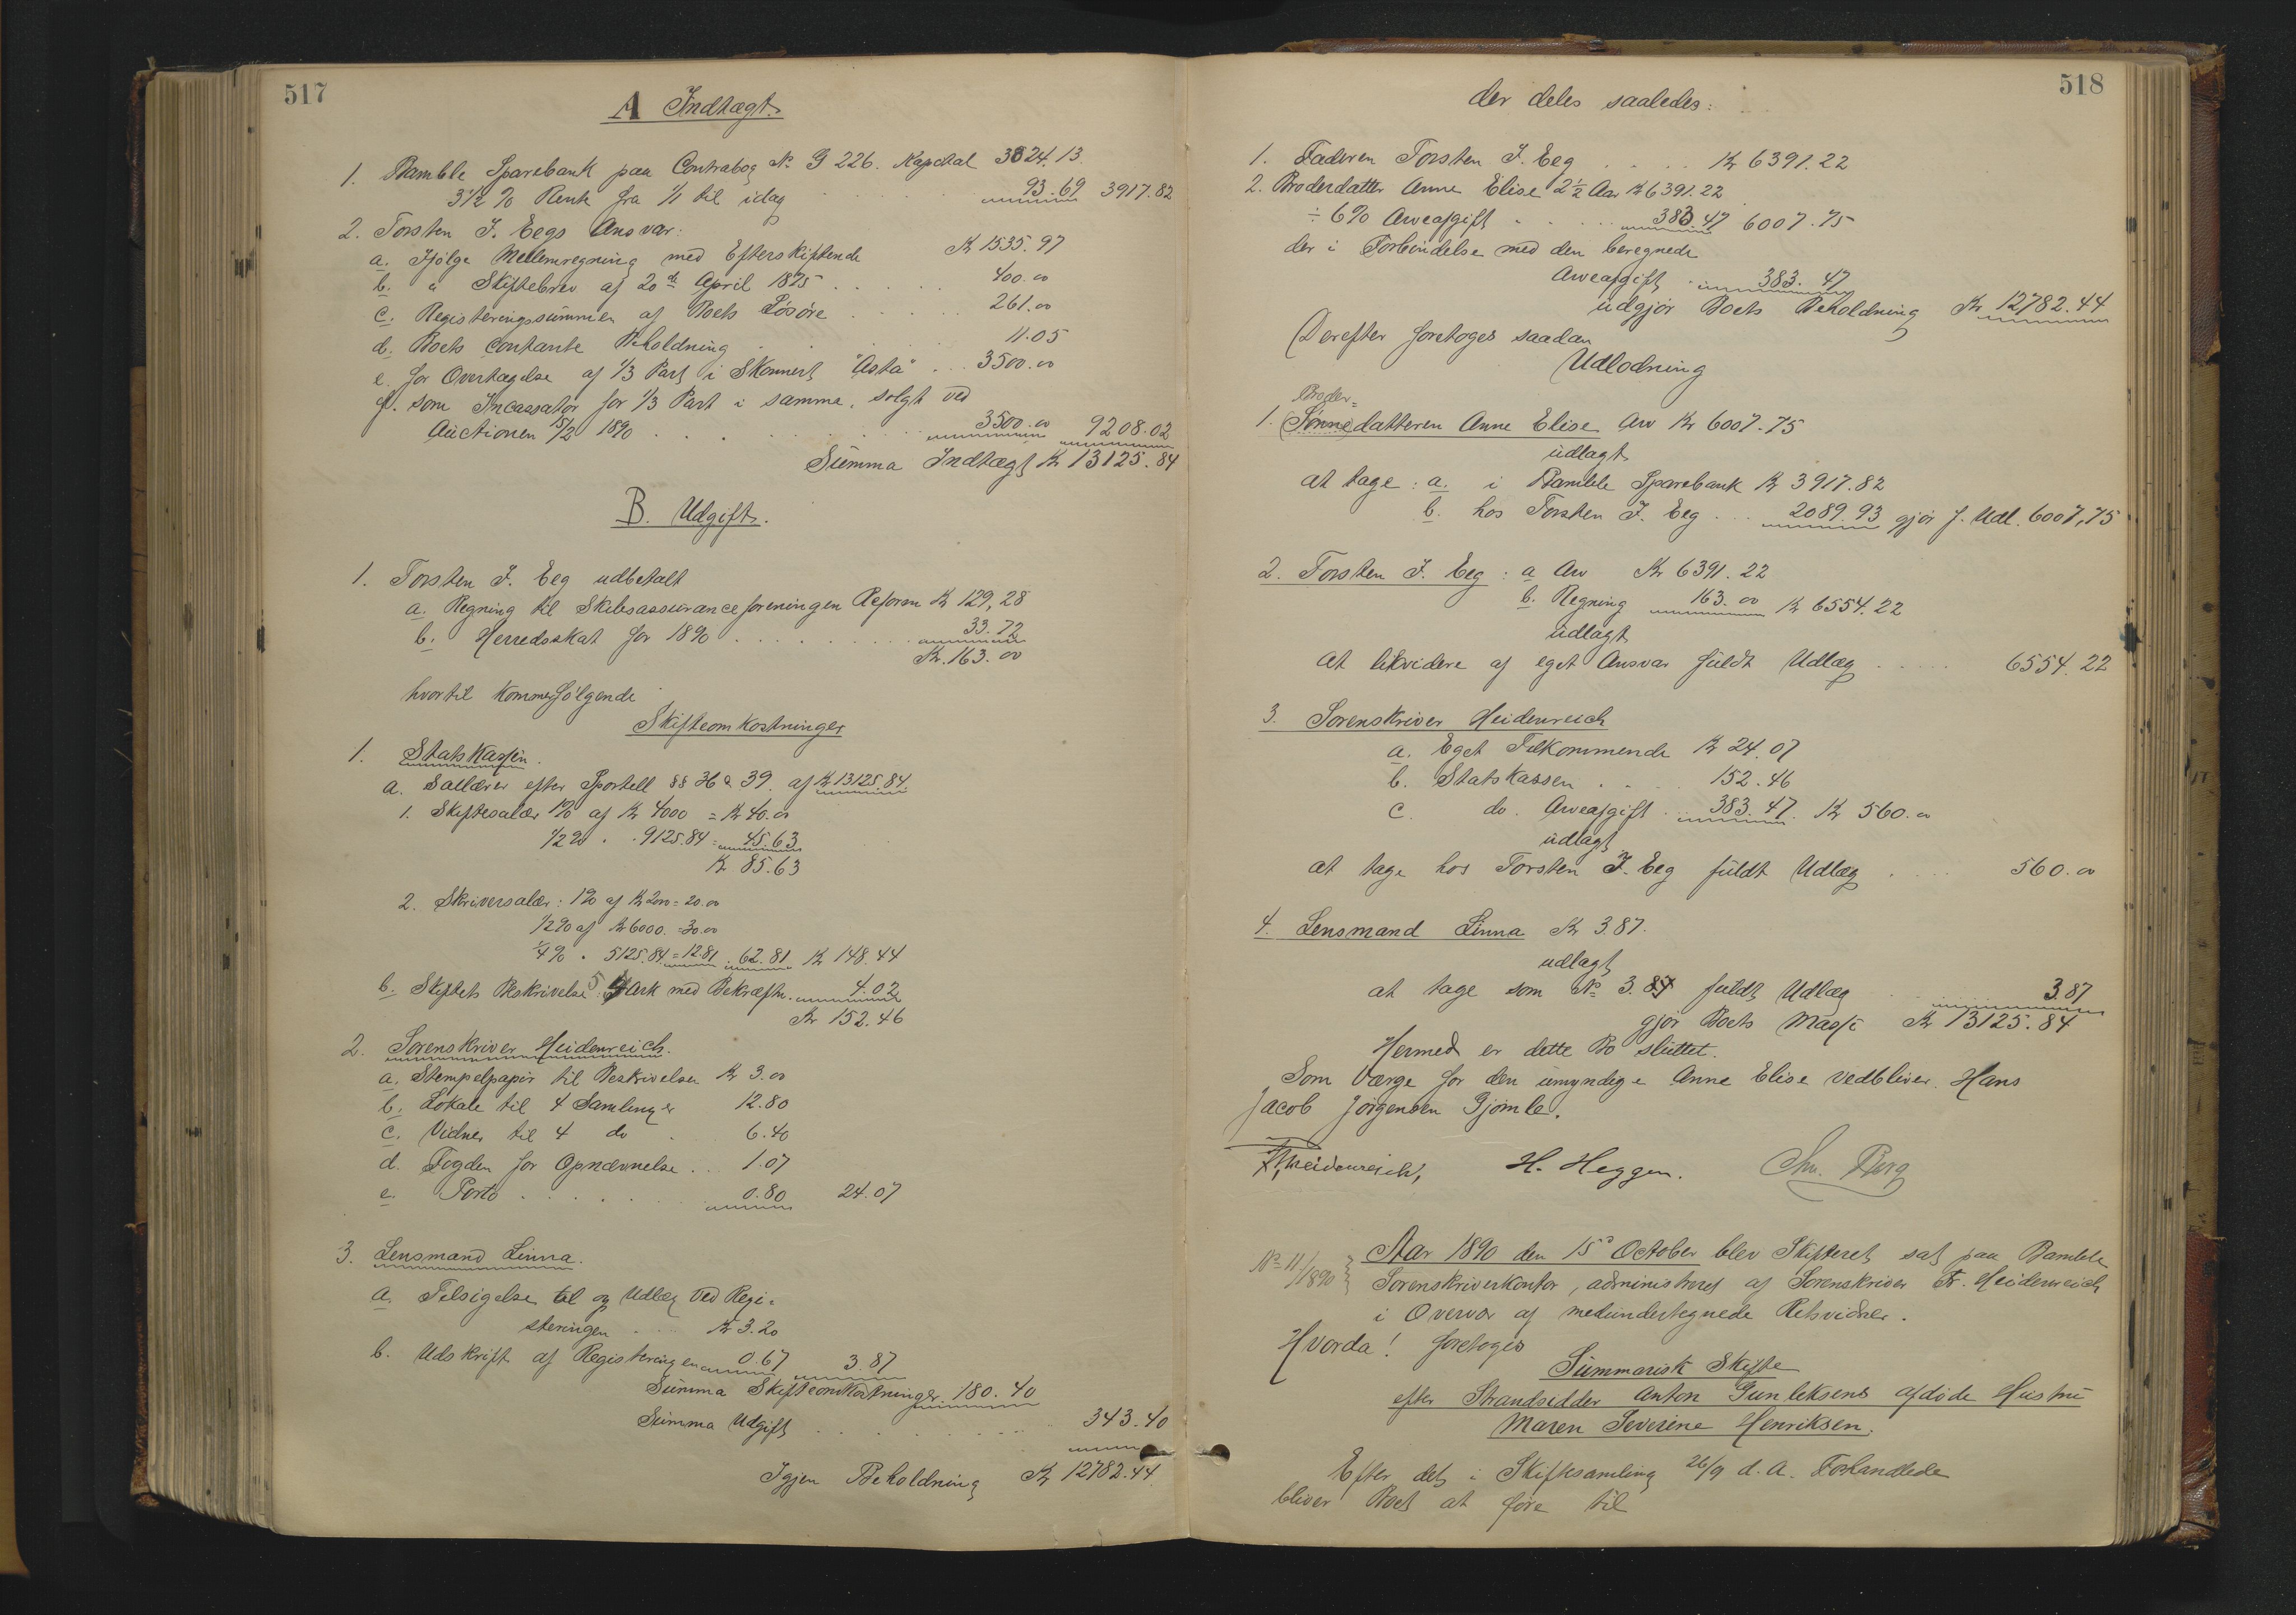 517
A Indtægt.
1. Bamble Sparebank paa Contrabog No G 226. Kapital 3824.13.
3 1/2 % Rente fra 1/1 til idag 93.69 3917.82
2. Torsten J. Eegs Ansvar:
a. Ifølge Mellemregning med Efterskiftende Kr 1535.97
b. " Skiftebrev af 20de April 1875 . . . . . 400.00
c. Registeringssummen af Boets Løsøre . . . . . 261.00
d. Boets contante Beholdning . . . . 11.05
e. for Overtagelse af 1/3 Part i Skonnert "Asta" . . . 3500.00
f. som Incassator for 1/3 Part i samme, solgt ved
Auctionen 15/2 1890 . . . . . 3500.00 9208.02
Summa Indtægt Kr 13125.84
B. Udgift.
1. Torsten J. Eeg udbetalt
a. Regning til Skibsassuranceforeningen Reform Kr 129,28
b. Herredsskat for 1890 . . . . . . . 33.72
Kr. 163.00
hvortil kommer følgende
Skifteomkostninger
1. Statskassen.
a. Sallærer efter Sportell §§ 36 & 39. af Kr 13125.84.
1. Skiftesalær 1% af Kr 4000 = Kr 40.00
1/2 % . . 9125.84 = 45.63
Kr 85.63
2. Skriversalær: 1% af Kr 2000 = 20.00
1/2 % af Kr 6000. = 30.00
1/4 % . 5125.84 = 12.81 . 62.81 Kr 148.44
b. Skiftets Beskrivelse 5 Ark med Bekræftn. 4.02
Kr 152.46
2. Sorenskriver Heidenreich.
a. Stempelpapir til Beskrivelsen Kr 3.00
b. Lokale til 4 Samlinger 12.80
c. Vidner til 4 do . 6.40
d. Fogden for Opnævnelse . . 1.07
e. Porto . . . . . 0.80 24.07
3. Lensmand Linna.
a. Tilsigelse til og Udlæg ved Regi=
steringen . . Kr 3.20
b. Udskrift af Registeringen 0.67 3.87
Summa Skifteomkostninger 180.40
Summa Udgift . . . . . . 343.40
Igjen Beholdning Kr 12782.44.
518
der deles saaledes:
1. Faderen Torsten J. Eeg . . . . Kr 6391.22
2. Broderdatter Anne Elise 2 1/2 Aar Kr 6391.22
÷ 6% Arveafgift . . . . 383.47 6007.75
der i Forbindelse med den beregnede
Arveafgift . 383.47
udgjør Boets Beholdning Kr 12782.44
Derefter foretoges saadan
Udlodning
Broder=
1. (Sønne)datteren Anne Elise Arv Kr 6007.75
udlagt
at tage: a. i Bamble Sparebank Kr 3917.82
b. hos Torsten J. Eeg . . 2089.93 gjør f. Udl. 6007,75
2. Torsten J. Eeg: a Arv Kr 6391.22
b. Regning 163.00 Kr 6554.22
udlagt
at likvidere af eget Ansvar fuldt Udlæg . . . . 6554.22
3. Sorenskriver Heidenreich
a. Eget Tilkommende Kr 24.07
b. Statskassen . . . 152.46
c. do. Arveafgift . . 383.47. Kr 560.00
udlagt
at tage hos Torsten J. Eeg fuldt Udlæg . . . . 560.00
4. Lensmand Linna Kr 3.87.
udlagt
at tage som No 3. fuldt Udlæg 3.87
gjør Boets Masse Kr 13125.84
Hermed er dette Bo sluttet.
Som Værge for den umyndige Anne Elise vedbliver Hans
Jacob Jørgensen Gjømle.
Fr. Heidenreich, H. Heggen. Berg
No 11/1890 } Aar 1890 den 15de October blev Skifteret sat paa Bamble
Sorenskriverkontor, administreret af Sorenskriver Fr. Heidenreich
i Overvær af medundertegnede Retsvidner.
Hvorda! foretoges
Summarisk Skifte
efter Strandsidder Anton Gunleksens afdøde Hustru
Maren Severine Henriksen.
Efter det i Skiftesamling 26/9 d. A. Forhandlede
bliver Boet at føre til